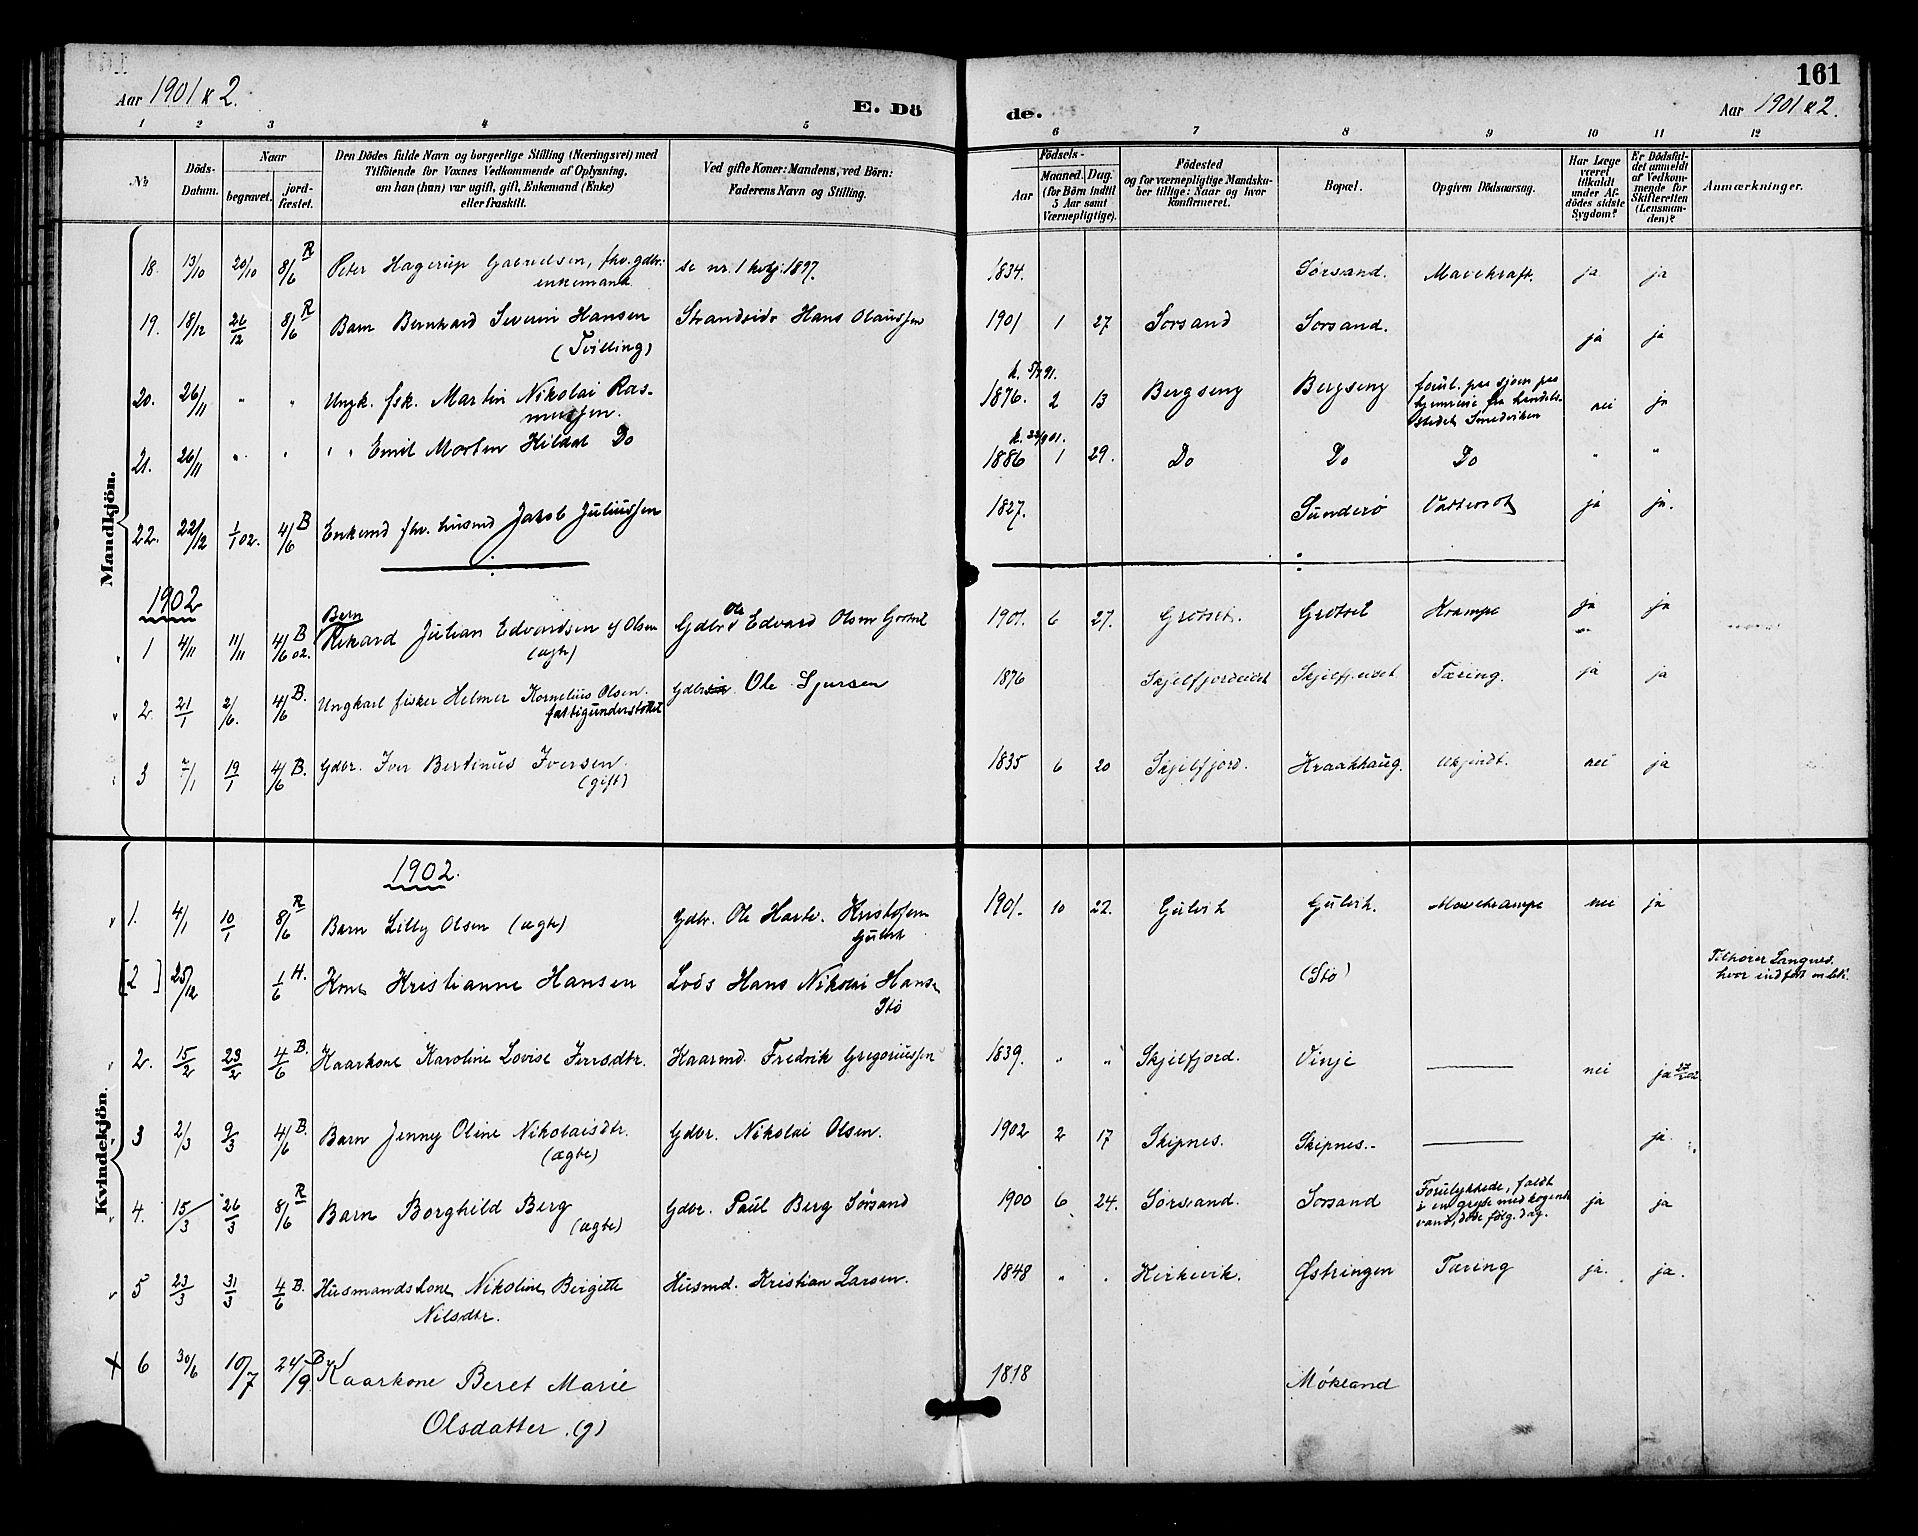 161
Aar 1901 & 2.
E. Dö
de.
Aar 1901 & 2.
1 2 3 4 5 6 7 8 9 10 11 12
No.
Döds-
Datum.
Naar
begravet.
jord-
fæstet.
Den Dödes fulde Navn og borgerlige Stilling (Næringsvei) med
Tilföiende for Voxnes Vedkommende af Oplysning,
om han (hun) var ugift, gift, Enkemand (Enke)
eller fraskilt.
Ved gifte Koner: Mandens, ved Börn:
Faderens Navn og Stilling.
Födsels-
Aar
Maaned.
Dag.
(for Börn indtil
5 Aar samt
Værnepligtige).
Födested
og for værnepligtige Mandska-
ber tillige: Naar og hvor
konfirmeret.
Bopæl.
Opgiven Dödsaarsag.
Har Læge
været
tilkaldt
under Af-
dödes sidste
Sygdom?
Er Dödsfal-
det anmeldt
af Vedkom-
mende for
Skifteretten
(Lensman-
den)?
Anmærkninger.
Mandkjön.
18. 13/10 20/10 8/6 R Peter Hagerup fhv. gdbr: se nr. 1 1897. 1834. Sörsand. Mavekræft. ja ja
enkemand.
19. 18/12 26/12 8/6 R Barn Bernhard Severin Hansen Strandsidr Hans Olaussen 1901 1 27 Sorsand Sorsand. ja ja
(Tvilling)
20. 26/11 " " Ungk. fsk. Martin Nikolai Ras- 1876. 2 13 Bergseng Bergseng forul. paa sjoen paa
mussen. hjemreise fra handels-
stedet Smedviken nei ja
21. 26/11 " " " " Emil Morten Hildal Do 1886 1 29. Do Do Do " "
22. 22/12 1/1 02. 4/6 B Enkemd fhv. husmd Jakob Juliussen 1827. Sunderö Vattersot ja ja.
1902
Barn
1 4/11 11/11 4/6 02. B Rikard Julian Edvardsen Olsen Gdbr Ole Edvard Olsen 1901. 6 27. Grötset. Grötset Krampe ja ja
(ægte)
2. 21/1 2/6. 4/6 B. Ungkarl fisker Helmer Kornelius Olsen. Gdbr Ole Sjursen 1876 Skjelfjordeidet Tæring. ja ja
fattigunderstöttet
3 7/1 19/1 4/6 B. Gdbr. Iver Bertinus Iversen. 1835 6 20 Skjelfjord. Kraakhaug. Ukjendt. nei ja
(gift)
Kvindekjön.
1902.
1. 4/1 10/1 8/6 R Barn Lilly Olsen (ægte) Gdbr. Ole Hartv. Kristofersen 1901. 10 22. Gulvik Gulvik. Mavekrampe nei ja
Gulvik
[2] 25/12 1/6 H. Kone Kristianne Hansen Lods Hans Nikolai Hansen (Stö) Tilhörer Langnes.
Stö hvor indfört
2. 15/2 23/2 4/6 B. Kaarkone Karoline Lovise Kaarmd. Fredrik Gregoriussen 1839. " " Skjelfjord. Vinje — nei ja
3 2/3 9/3 4/6 B. Barn Jenny Oline Nikolaisdtr. Gdbr. Nikolai Olsen. 1902 2 17 Skipnes. Skipnes. — ja.
(ægte)
4. 15/3 26/3 8/6 R Barn Borghild Berg Gdbr. Paul Berg Sörsand 1900 6 24. Sörsand. Sorsand Forulykkede, faldt
(ægte) i en gryte med kogende
vand, döde fölg. dag. ja ja
5 23/3 31/3 4/6 B. Husmandskone Nikoline Birgitte Husmd. Kristian Larsen. 1848 " " Kirkevik. Østringen Tæring ja. ja.
Nilsdtr.
6 30/6 10/7 24/9. Kaarkone Beret Marie 1818 Mökland
Olsdatter. (g)